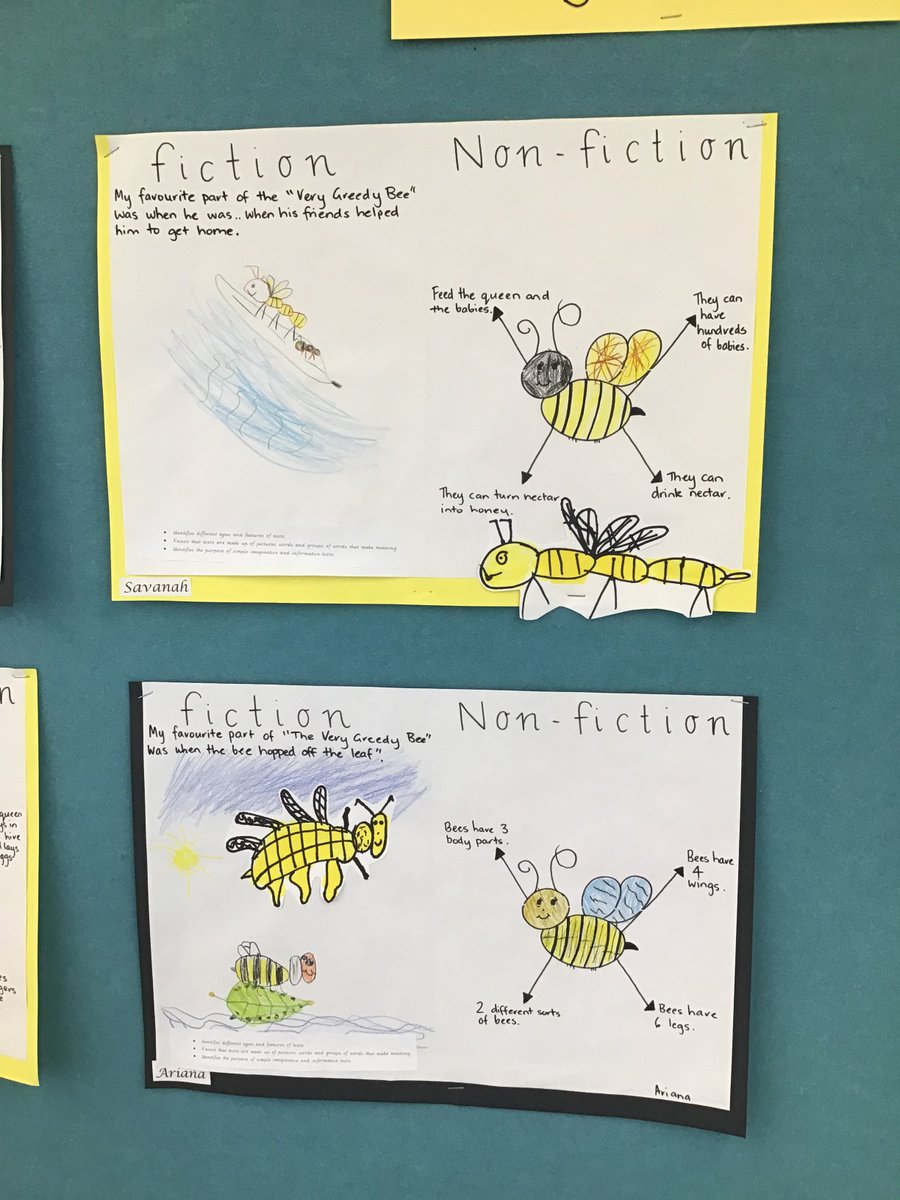 fiction
My favourite part of the "Very Greedy Bee"
was when he was.. when his friends helped
him to get home.
Non-fiction
Feed the queen and
the babies.
They can
have
hundreds
of babies.
They can turn nectar
into honey.
They can
drink nectar.
• Identifies different types and features of texts
• Knows that texts are made up of pictures words and groups of words that make meaning
• Identifies the purpose of simple imaginative and informative texts
Savanah
fiction
My favourite part of "The Very Greedy Bee"
was when the bee hopped off the leaf".
Non-fiction
Bees have 3
body parts.
Bees have
4
wings.
2 different sorts
of bees.
Bees have
6 legs.
• Identifies different types and features of texts
• Knows that texts are made up of pictures words and groups of words that make meaning
• Identifies the purpose of simple imaginative and informative texts
Ariana
Ariana
n
queen
in
hive
lays